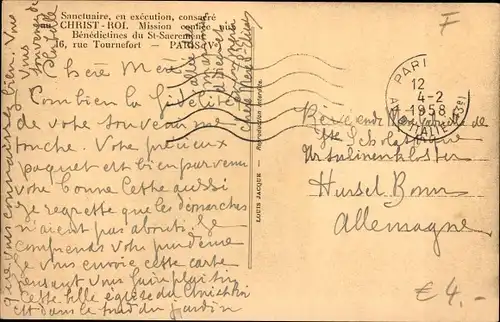 Sanctuaire, en exécution, consacré
au CHRIST-ROI. Mission confiée aux
Bénédictines du St-Sacrement
16, rue Tournefort - PARIS (Ve)
Chère Mère
Combien la fidélité
de votre souvenir me
touche. Votre précieux
paquet est bien parvenu
votre bonne lettre aussi
Je regrette que les démarches
n'aient pas abouti. Je
comprends votre prudence
Je vous envoie cette carte
pensant vous faire plaisir
Cette belle église du Christ Roi
est dans le fond du jardin
que vous connaissez bien. Vous
vous
souvenez
LOUIS JACQUE - Reproduction interdite.
F
PARI
12
4-2
1958
Révérende Mère
Ste Scholastique
Ursulinenkloster
Hersel Bonn
Allemagne
€ 4.-